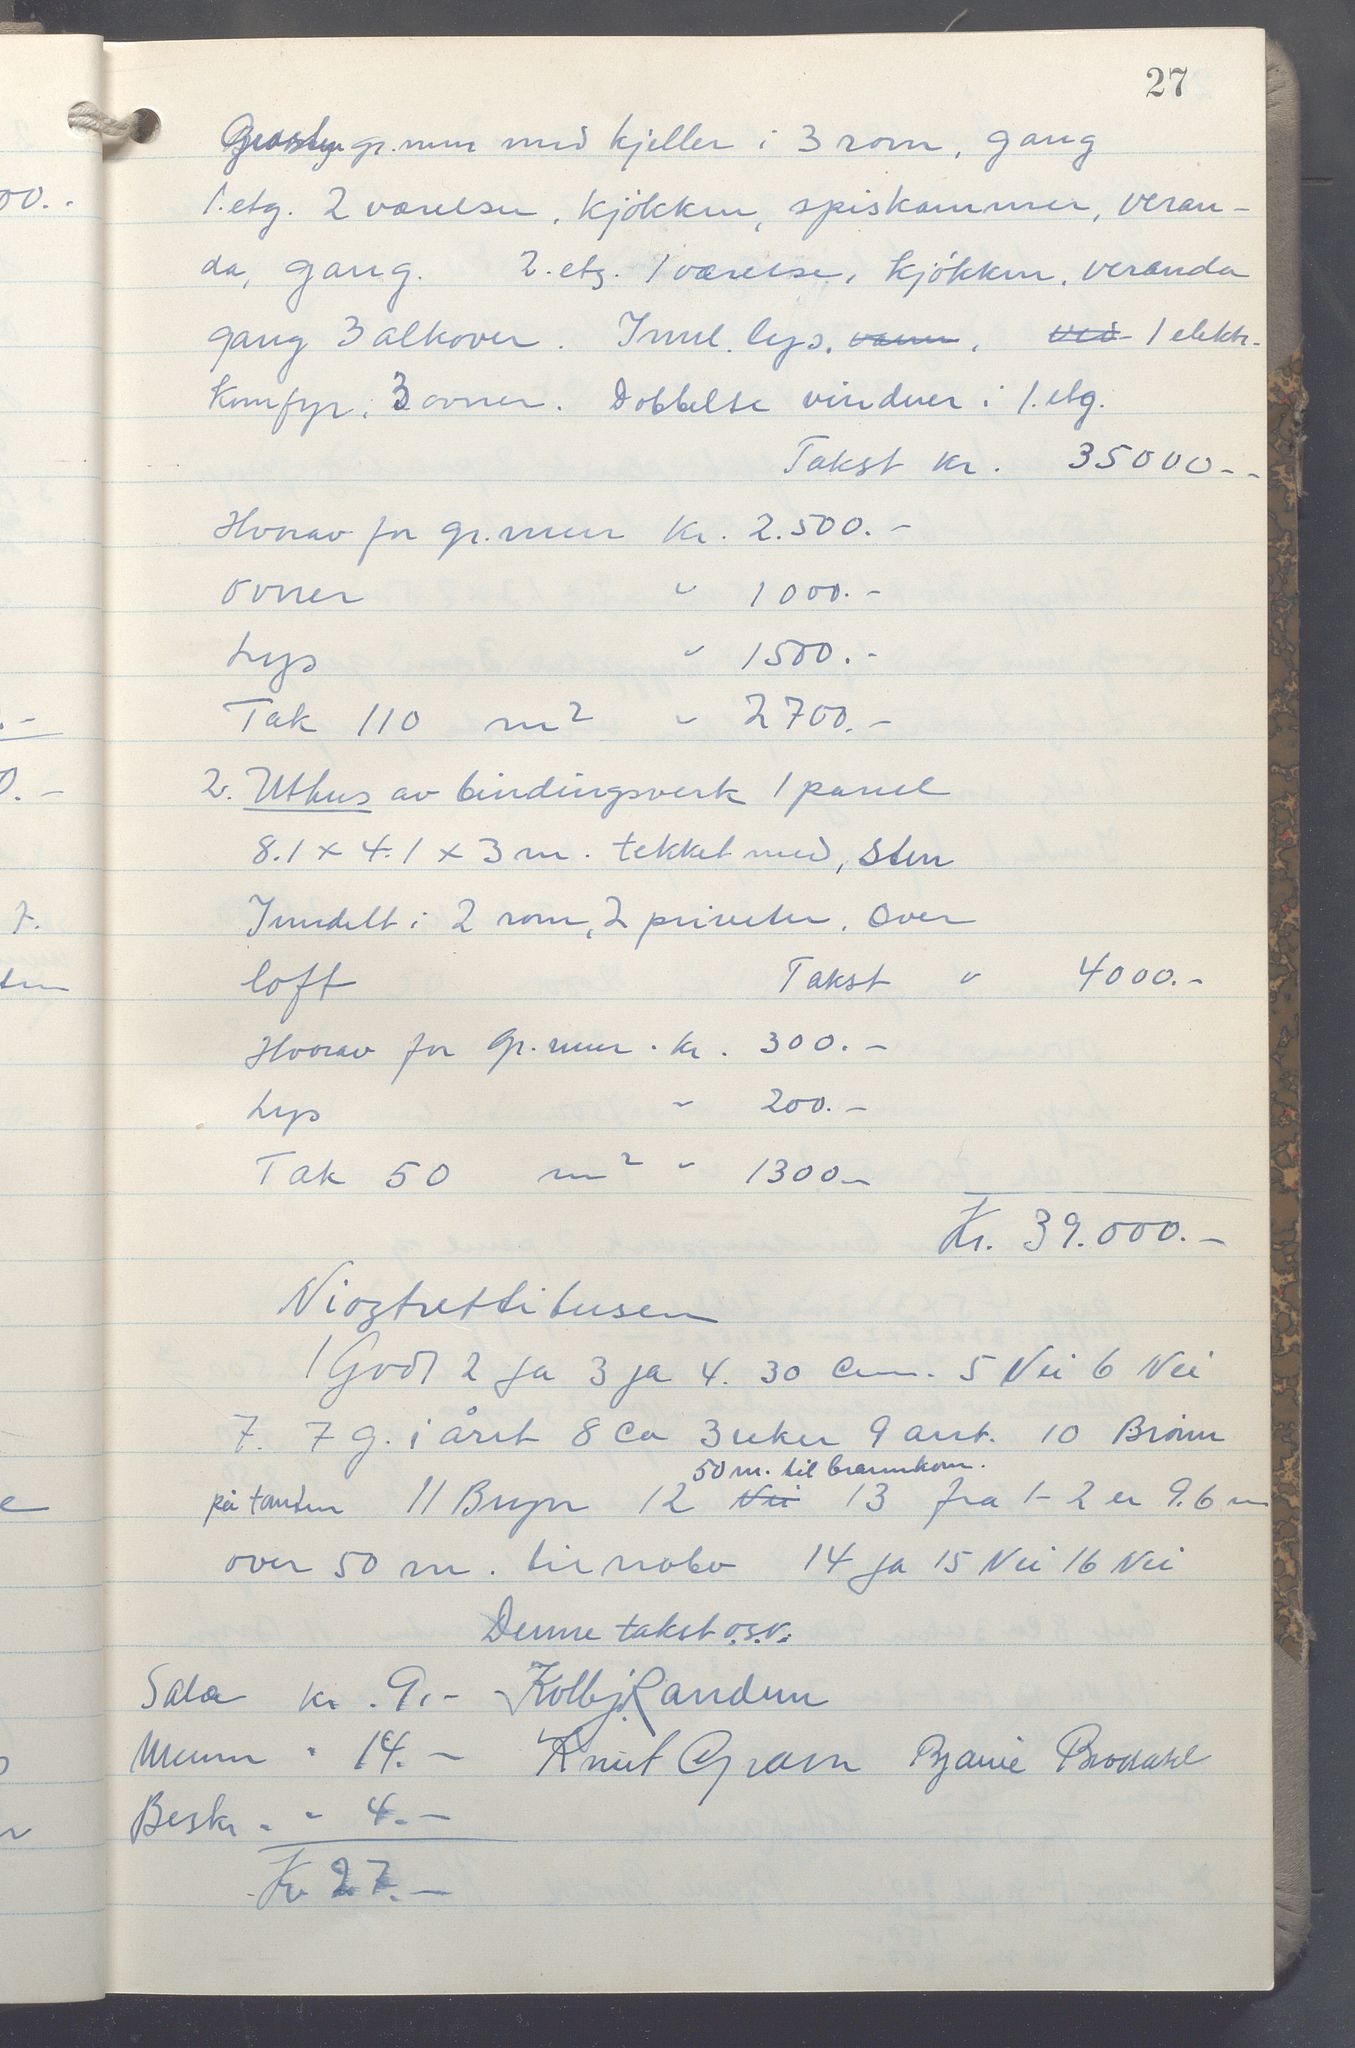 27
gr.mur med kjeller i 3 rom, gang
1.etg. 2 værelser, kjökken, spiskammer, veran-
da, gang. 2.etg. 1 værelse, kjökken, veranda
gang 3 alkover. Innl. lys, vann, 1 elektr.
komfyr, 3 ovner. Dobbelse vinduer i 1.etg.
Takst kr. 35000.-
Hvorav for gr.mur kr. 2.500.-
ovner " 1000.-
Lys " 1500.-
Tak 110 m² " 2700.-
2. Uthus av bindingsverk 1 panel
8.1 x 4.1 x 3 m. tekket med, sten
Inndelt i 2 rom, 2 priveter. Over
loft Takst " 4000.-
Hvorav for gr.mur. kr. 300.-
Lys " 200.-
Tak 50 m² " 1300.-
Kr. 39.000.-
Niogtrettitusen
1 God 2 ja 3 ja 4. 30 cm. 5 Nei 6 Nei
7. 7 g. i året 8 ca 3 uker 9 ant. 10 Brönn
50 m. til brannkom.
på tomten 11 Bryn 12 Nei 13 fra 1-2 er 9.6 m
over 50 m. til nabo 14 ja 15 Nei 16 Nei
Denne takst o.s.v.
Salær kr. 9.- Kolbj. Randem
Menn " 14.- Knut Gram Bjarne
Beskr. " 4.-
Kr 27.-